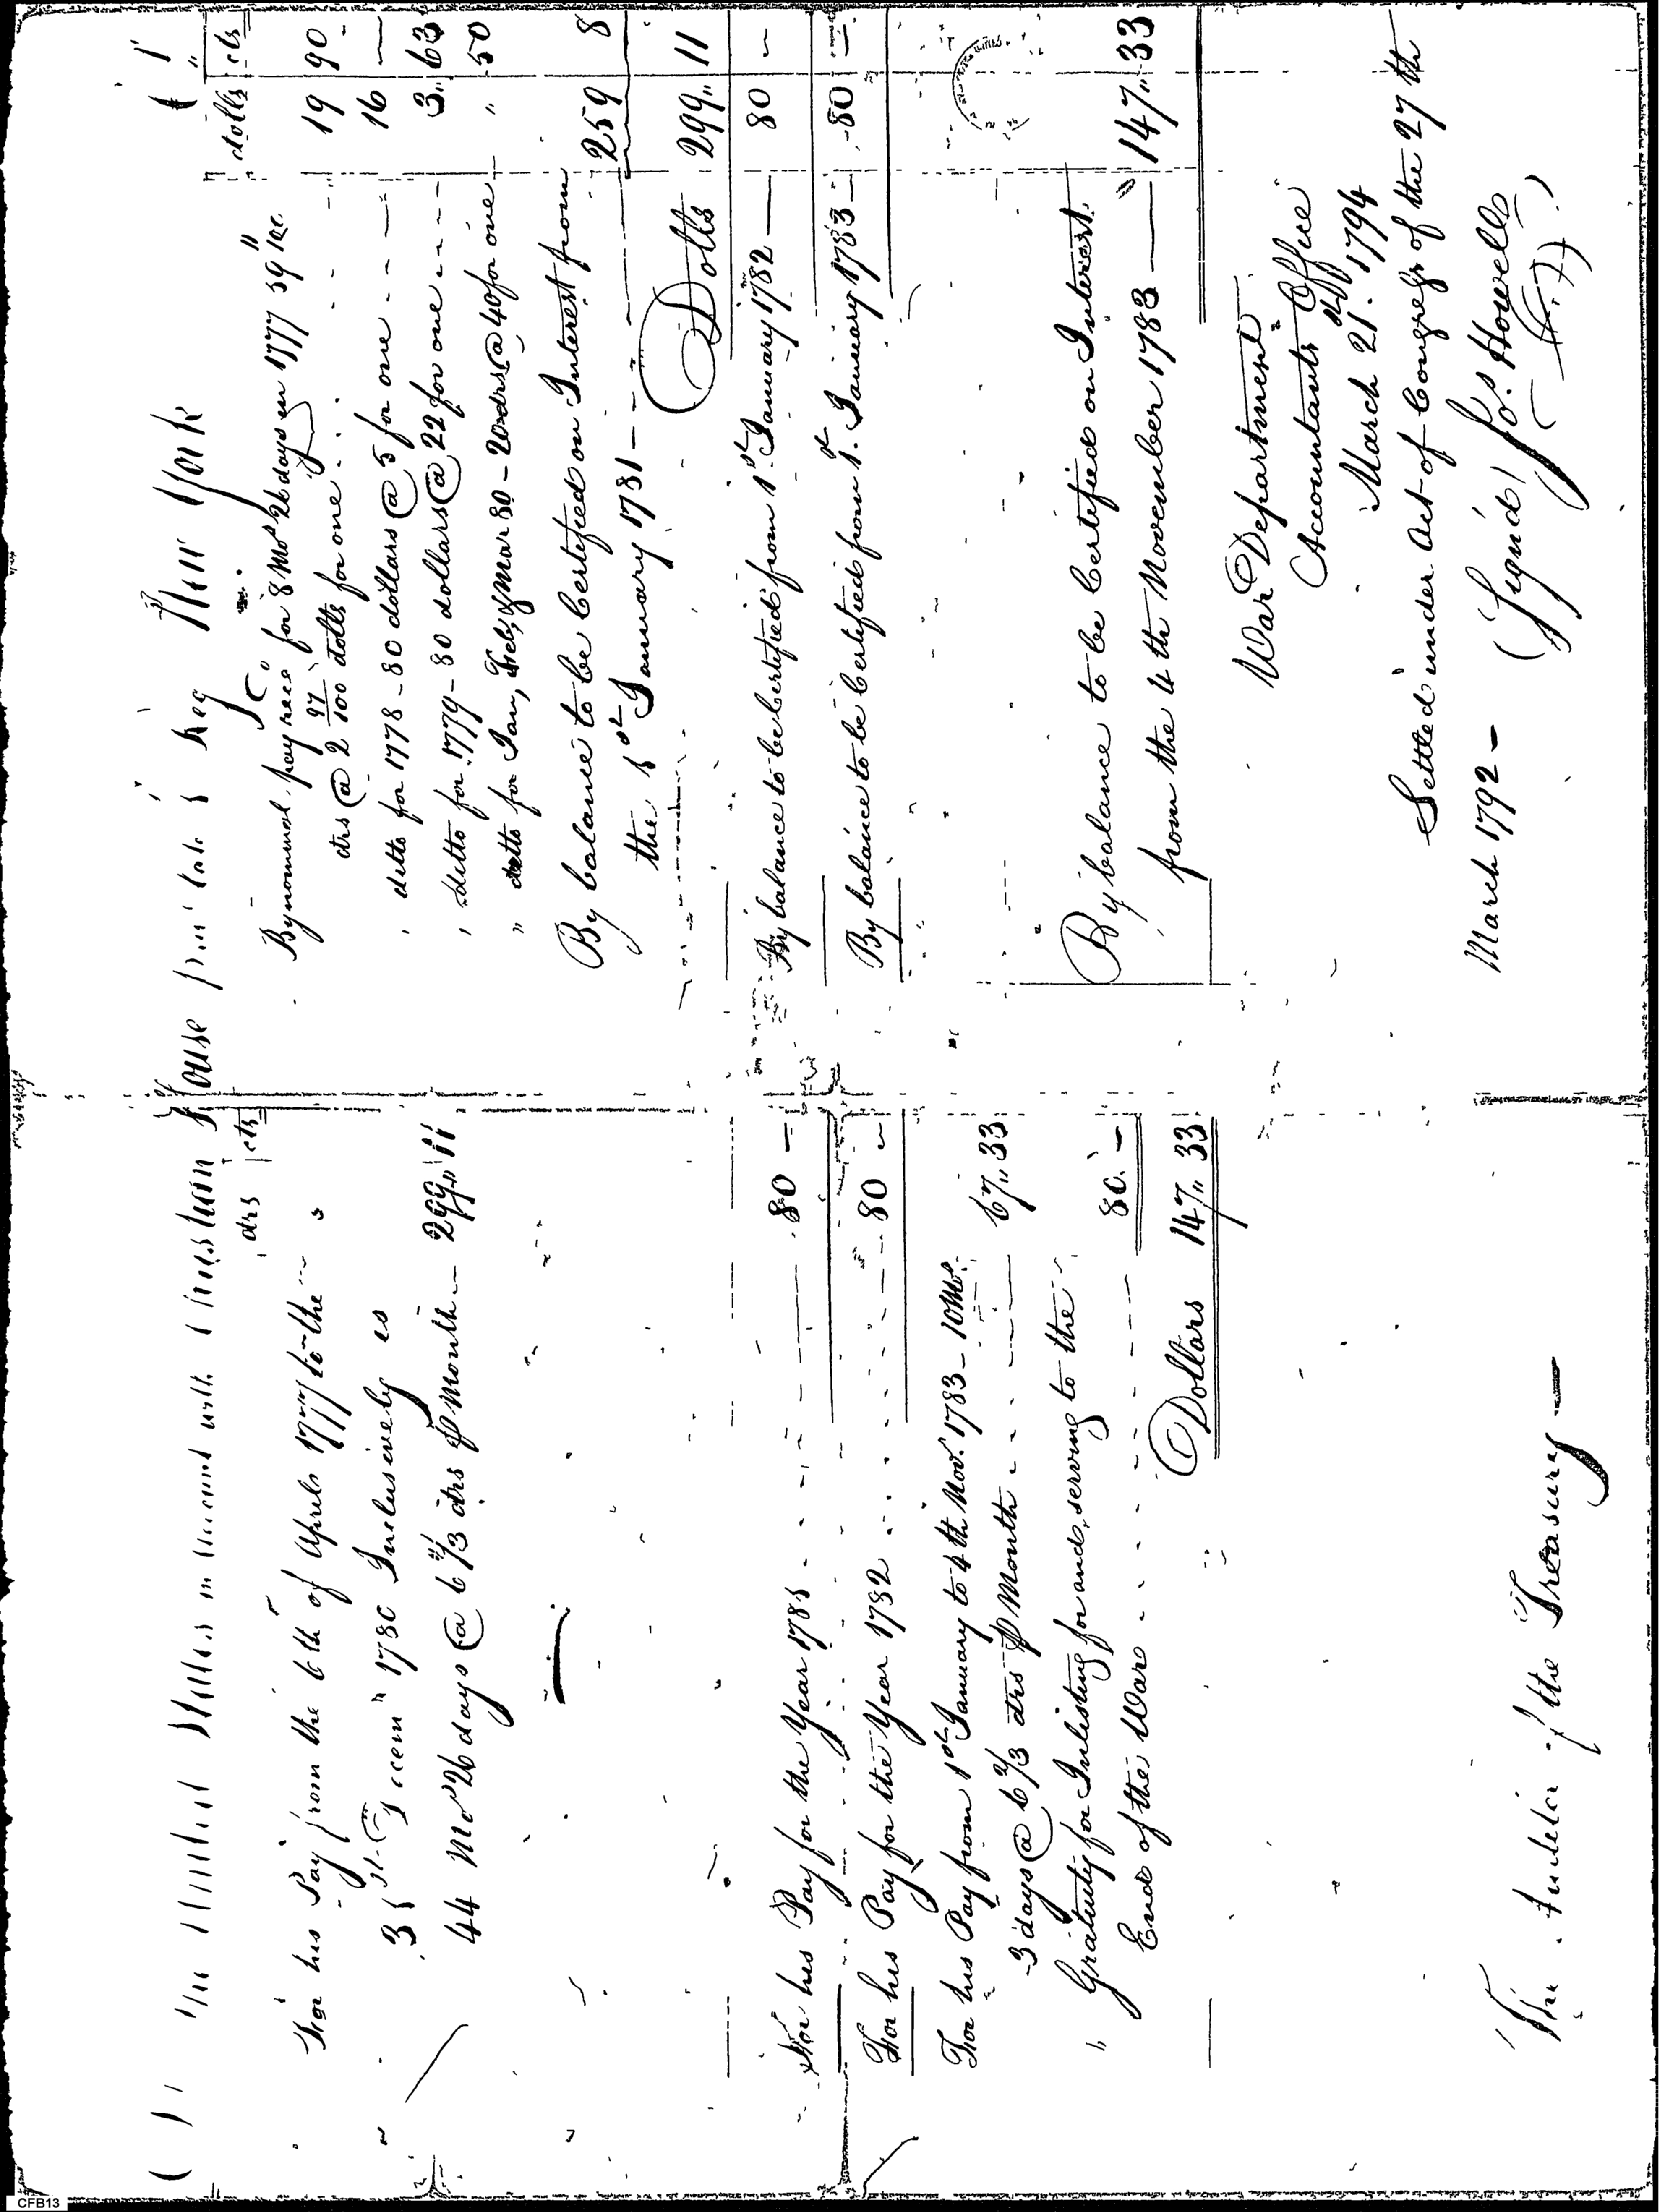 The United States in account with Christian House private 1 Reg New York
drs cts
For his Pay from the 6th of April 1777 to the
31st Decem 1780 Inclusively is
44 Mos 26 days @ 6 2/3 drs p Month — 299,, 11
For his Pay for the Year 1781 - - - 80 —
For his Pay for the Year 1782 - - - 80 —
For his Pay from 1st January to 4th Nov. 1783 — 10 Mos.
3 days @ 6 2/3 drs p Month - - - 67,, 33
" Gratuity for Inlisting for and serving to the
End of the War - - - 80. —
Dollars 147,, 33
The Auditor of the Treasury —
dolls cts
By nominal pay rece'd for 8 Mos 26 days in 1777 59"
cts @ 2 97/100 dolls for one - - 19 90
" ditto for 1778 - 80 dollars @ 5 for one - - - 16 —
" ditto for 1779 - 80 dollars @ 22 for one - - - 3,, 63
" ditto for Jan, Feb, & Mar 80 - 20 drs @ 40 for one " 50
By balance to be Certified on Interest from
the 1st January 1781 - - 259 8
Dolls 299,, 11
By balance to be Certified from 1st January 1782 — 80 —
By balance to be Certified from 1st January 1783 — 80 —
By balance to be Certified on Interest
from the 4th November 1783 — 147,, 33
War Department
Accountants Office
March 21st. 1794
Settled under Act of Congress of the 27th
March 1792 —
(Signed) Jos. Howell
CFB13